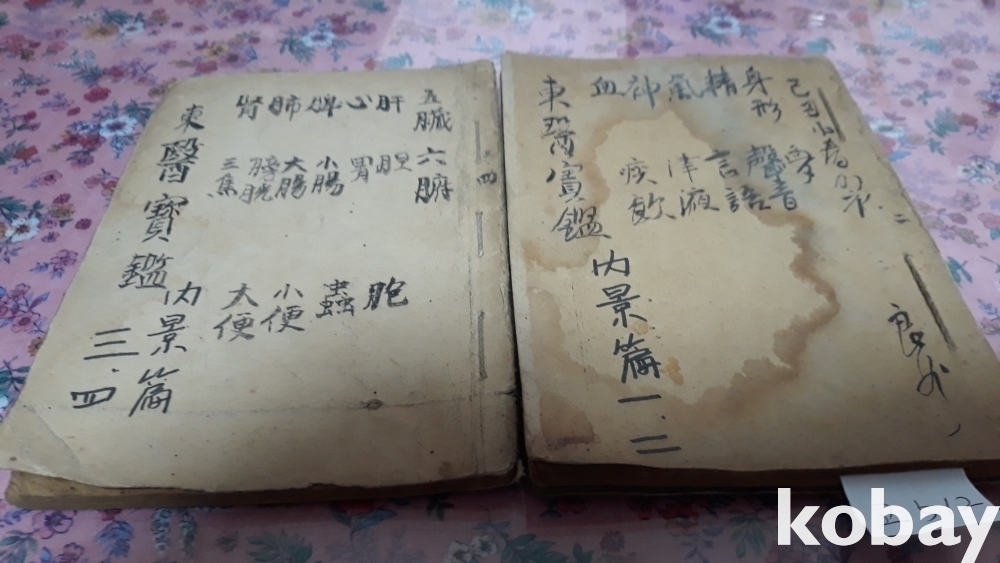 身形 精 氣 神 血
夢 聲音 言語 津液 痰飮
東醫寶鑑 內景篇 一.二
五臟 六腑
肝 心 脾 肺 腎
胆 胃 小腸 大腸 膀胱 三焦
胞 蟲 小便 大便
東醫寶鑑 內景篇 三.四
四
kobay